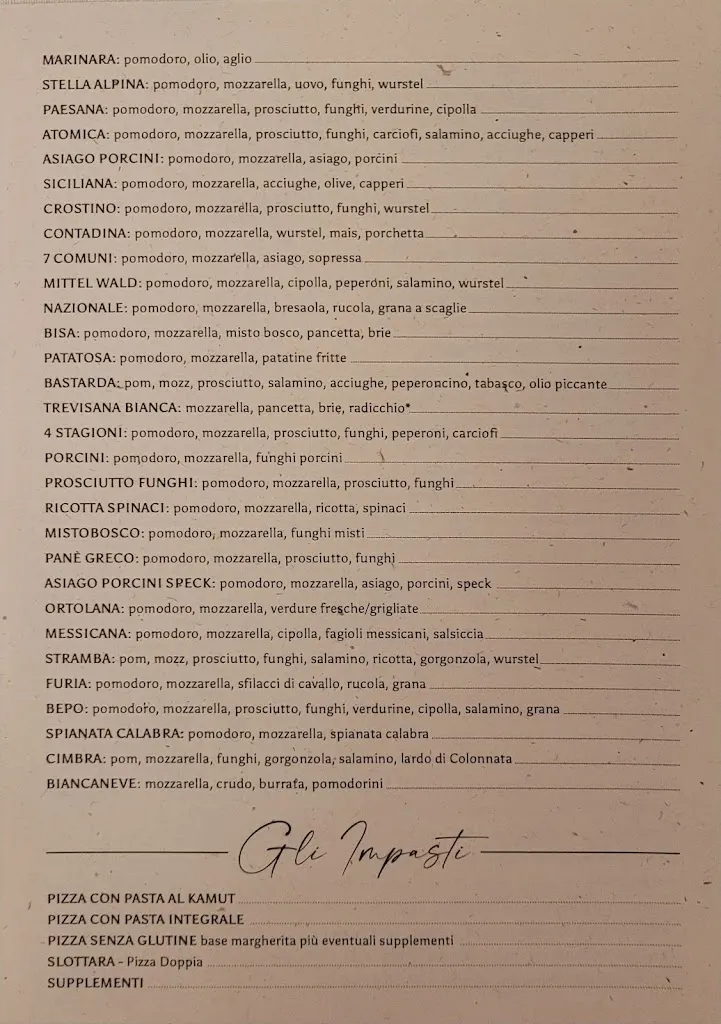 MARINARA: pomodoro, olio, aglio
STELLA ALPINA: pomodoro, mozzarella, uovo, funghi, wurstel
PAESANA: pomodoro, mozzarella, prosciutto, funghi, verdurine, cipolla
ATOMICA: pomodoro, mozzarella, prosciutto, funghi, carciofi, salamino, acciughe, capperi
ASIAGO PORCINI: pomodoro, mozzarella, asiago, porcini
SICILIANA: pomodoro, mozzarella, acciughe, olive, capperi
CROSTINO: pomodoro, mozzarella, prosciutto, funghi, wurstel
CONTADINA: pomodoro, mozzarella, wurstel, mais, porchetta
7 COMUNI: pomodoro, mozzarella, asiago, sopressa
MITTEL WALD: pomodoro, mozzarella, cipolla, peperoni, salamino, wurstel
NAZIONALE: pomodoro, mozzarella, bresaola, rucola, grana a scaglie
BISA: pomodoro, mozzarella, misto bosco, pancetta, brie
PATATOSA: pomodoro, mozzarella, patatine fritte
BASTARDA: pom, mozz, prosciutto, salamino, acciughe, peperoncino, tabasco, olio piccante
TREVISANA BIANCA: mozzarella, pancetta, brie, radicchio*
4 STAGIONI: pomodoro, mozzarella, prosciutto, funghi, peperoni, carciofi
PORCINI: pomodoro, mozzarella, funghi porcini
PROSCIUTTO FUNGHI: pomodoro, mozzarella, prosciutto, funghi
RICOTTA SPINACI: pomodoro, mozzarella, ricotta, spinaci
MISTOBOSCO: pomodoro, mozzarella, funghi misti
PANÈ GRECO: pomodoro, mozzarella, prosciutto, funghi
ASIAGO PORCINI SPECK: pomodoro, mozzarella, asiago, porcini, speck
ORTOLANA: pomodoro, mozzarella, verdure fresche/grigliate
MESSICANA: pomodoro, mozzarella, cipolla, fagioli messicani, salsiccia
STRAMBA: pom, mozz, prosciutto, funghi, salamino, ricotta, gorgonzola, wurstel
FURIA: pomodoro, mozzarella, sfilacci di cavallo, rucola, grana
BEPO: pomodoro, mozzarella, prosciutto, funghi, verdurine, cipolla, salamino, grana
SPIANATA CALABRA: pomodoro, mozzarella, spianata calabra
CIMBRA: pom, mozzarella, funghi, gorgonzola, salamino, lardo di Colonnata
BIANCANEVE: mozzarella, crudo, burrata, pomodorini
Gli Impasti
PIZZA CON PASTA AL KAMUT
PIZZA CON PASTA INTEGRALE
PIZZA SENZA GLUTINE base margherita più eventuali supplementi
SLOTTARA - Pizza Doppia
SUPPLEMENTI